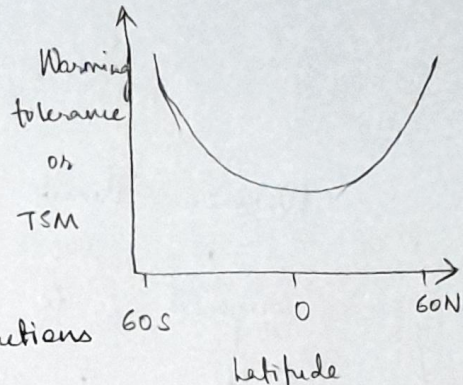 Warming
tolerance
or
TSM
60S
0
60N
Latitude